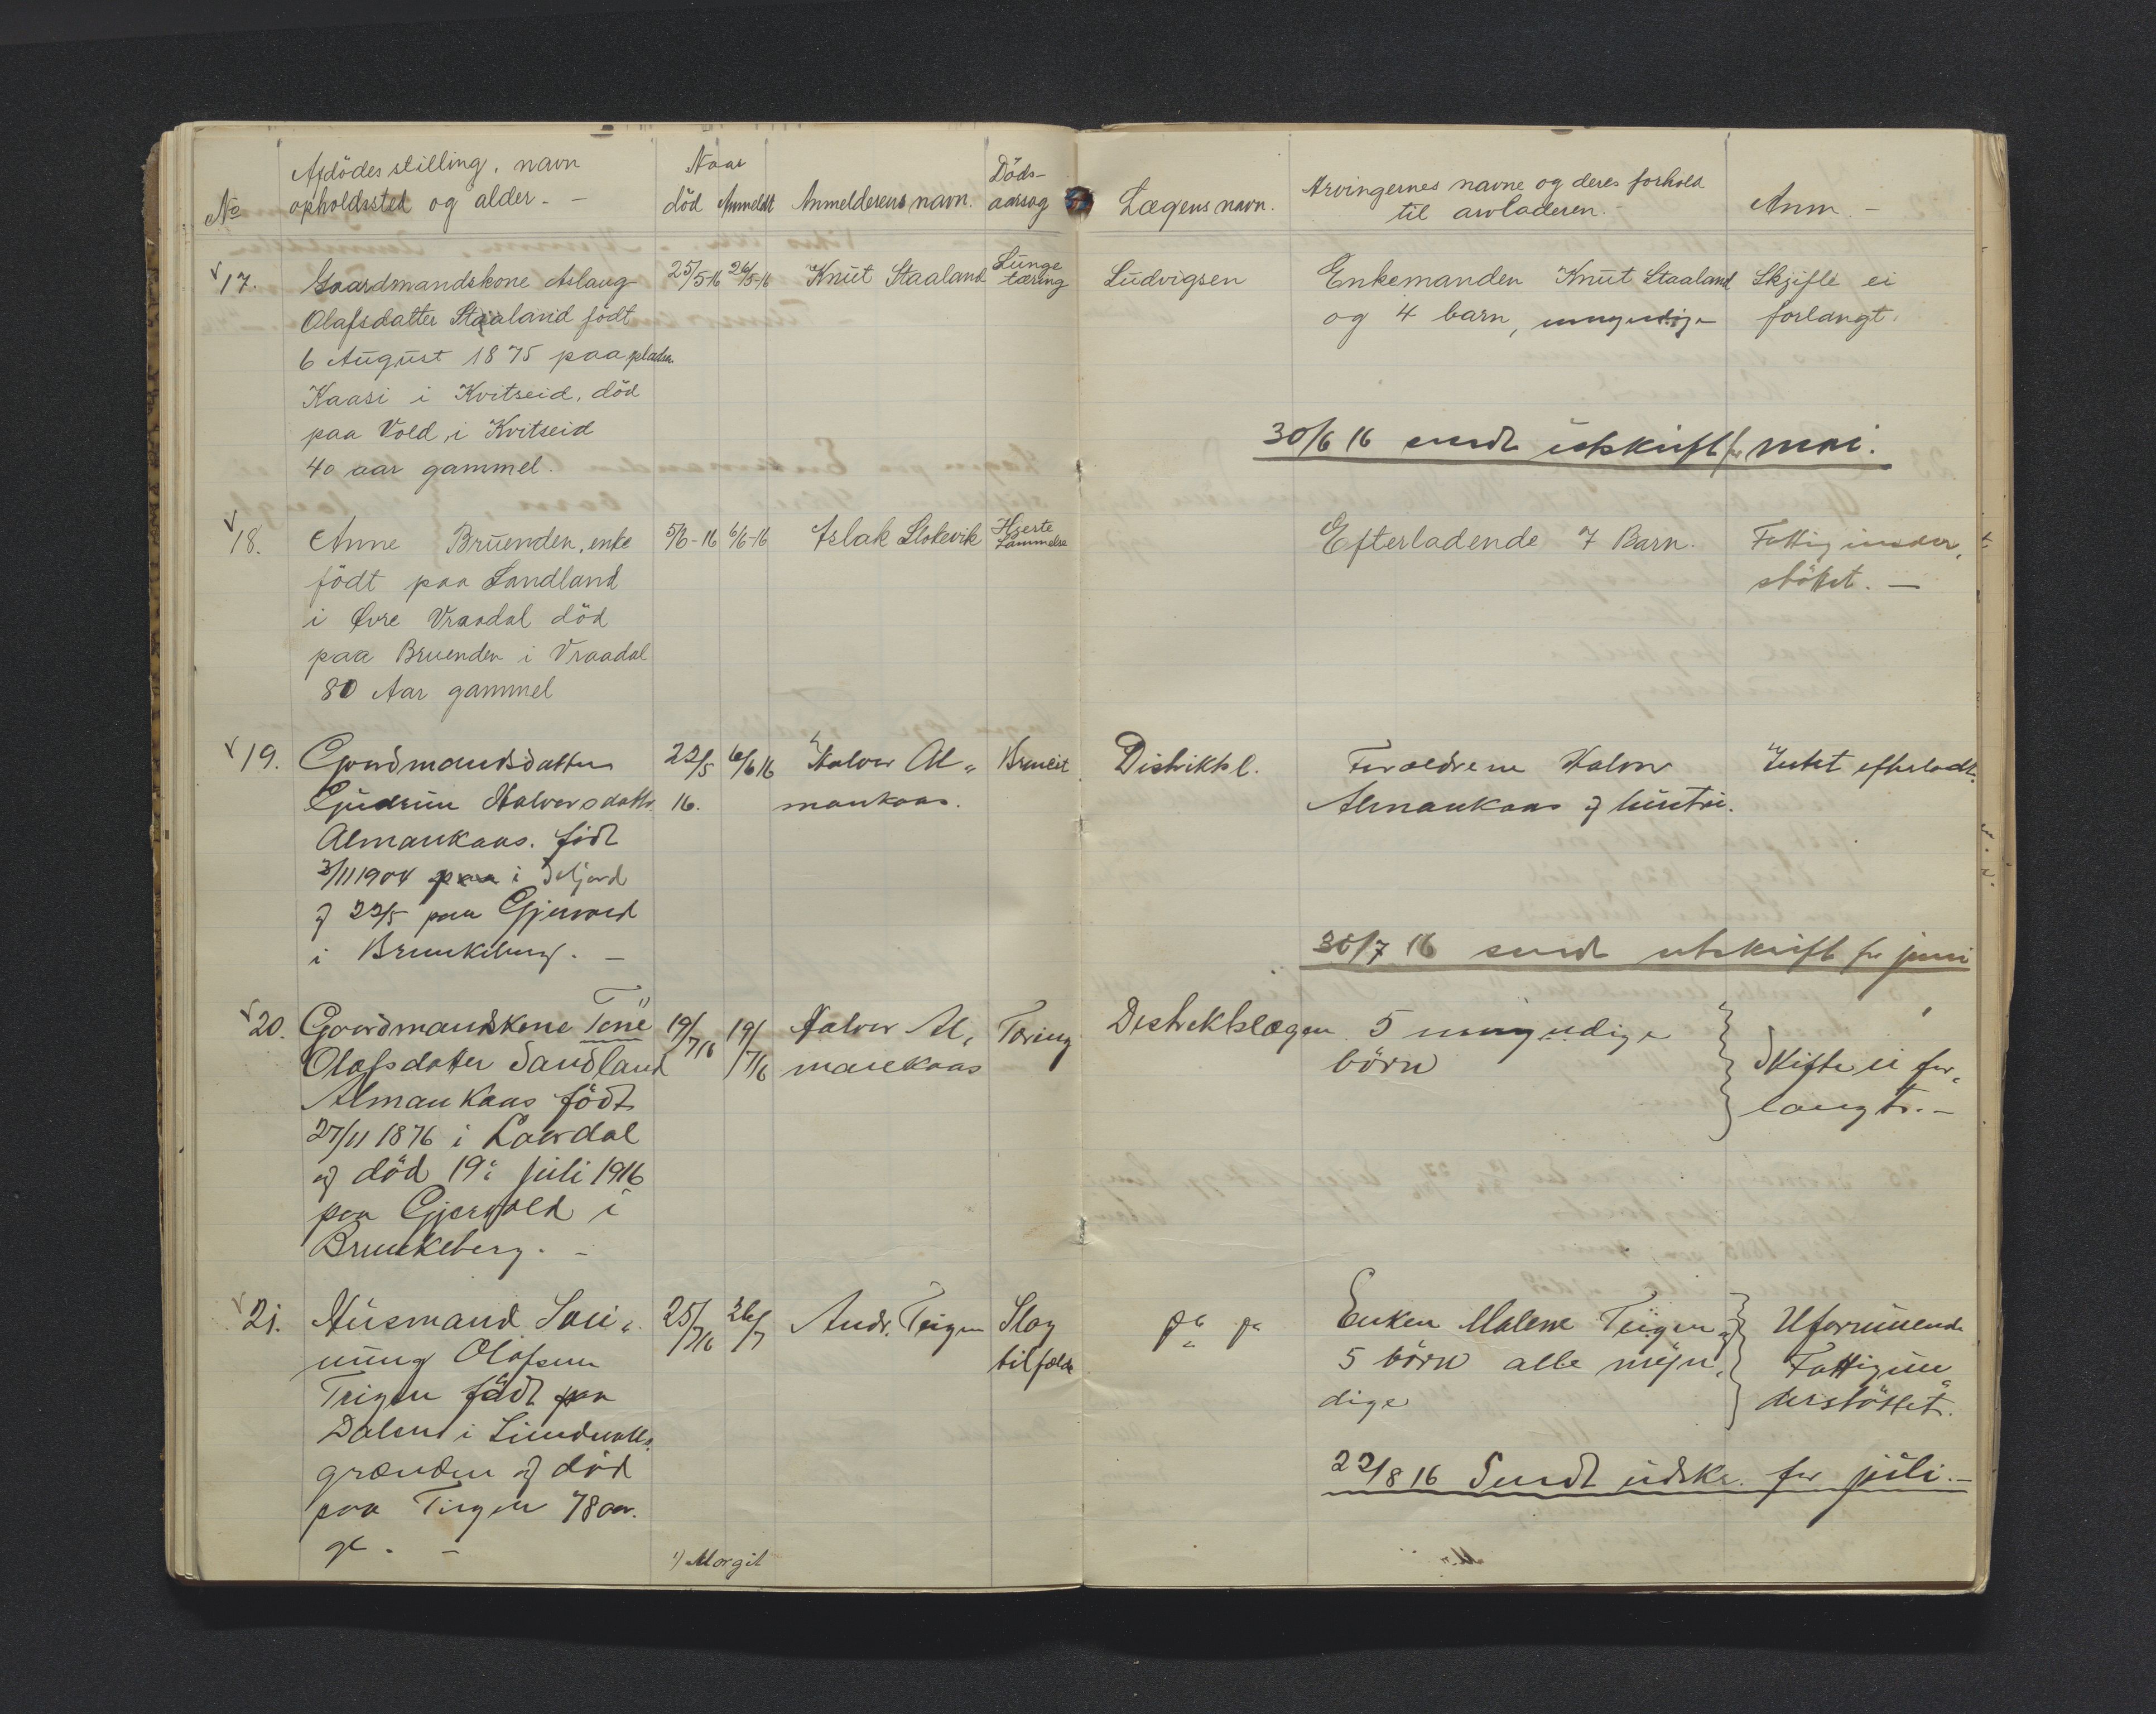 Afdödes stilling, navn
No opholdssted og alder. -
Naar
död Anmeldt
Anmelderens navn.
Döds-
aarsag
Lægens navn.
Arvingernes navne og deres forhold
til arvladeren.
Anm. -
17. Gaardmandskone Aslaug
Olafsdatter Staaland födt
6 August 1875 paa pladsen
Kaasi i Kvitseid, död
paa Vold i Kvitseid
40 aar gammel.
25/5-16 26/5-16
Knut Staaland
Lunge
tæring
Ludvigsen
Enkemanden Knut Staaland
og 4 barn, umyndige
Skjifte ei
forlangt.
30/6 16 sendt utskrift f. mai.
18. Anne Bruenden, enke
födt paa Sandland
i Øvre Vraadal död
paa Bruenden i Vraadal
80 Aar gammel
5/6-16 6/6-16
Aslak Slokvik
Hjerte
Lammelse
Efterladende 7 Barn.
Fattigunder,
stöttet. -
19. Gardmandsdatter
Gudrun Halvorsdattr.
Almankaas. födt
3/11 1904 i Seljord
og 22/5 paa Gjervold
i Brunkeberg. -
22/5
16.
6/6 16
Halvor Al„
mankaas.
Distriktsl.
Foreldrene Halvor
Almankaas og hustru.
Intet efterladt.
30/7 16 sendt utskrift for juni
20. Gaardmandskone Tone 1)
Olafsdatter Sandland
Almankaas födt
27/11 1876 i Laardal
og död 19. juli 1916
paa Gjervold i
Brunkeberg. -
19/7 16
19/7 16
Halvor Al,
mankaas
Tæring
Distriktslægen
5 umyndige
börn
Skifte ei for,
langt. -
21. Husmand Sau„
nung Olafsen
Teigen födt paa
Dalen i Lindvatts.
grænden og död
paa Teigen 78 aar.
gl. -
25/7 16
26/7
Andr. Teigen
Slag
tilfælde
Enken Malene Teigen og
5 börn alle myn,
dige
Uformuende
Fattigun„
derstöttet.
22/8 16 Sendt udskr. for juli. -
1) Margit